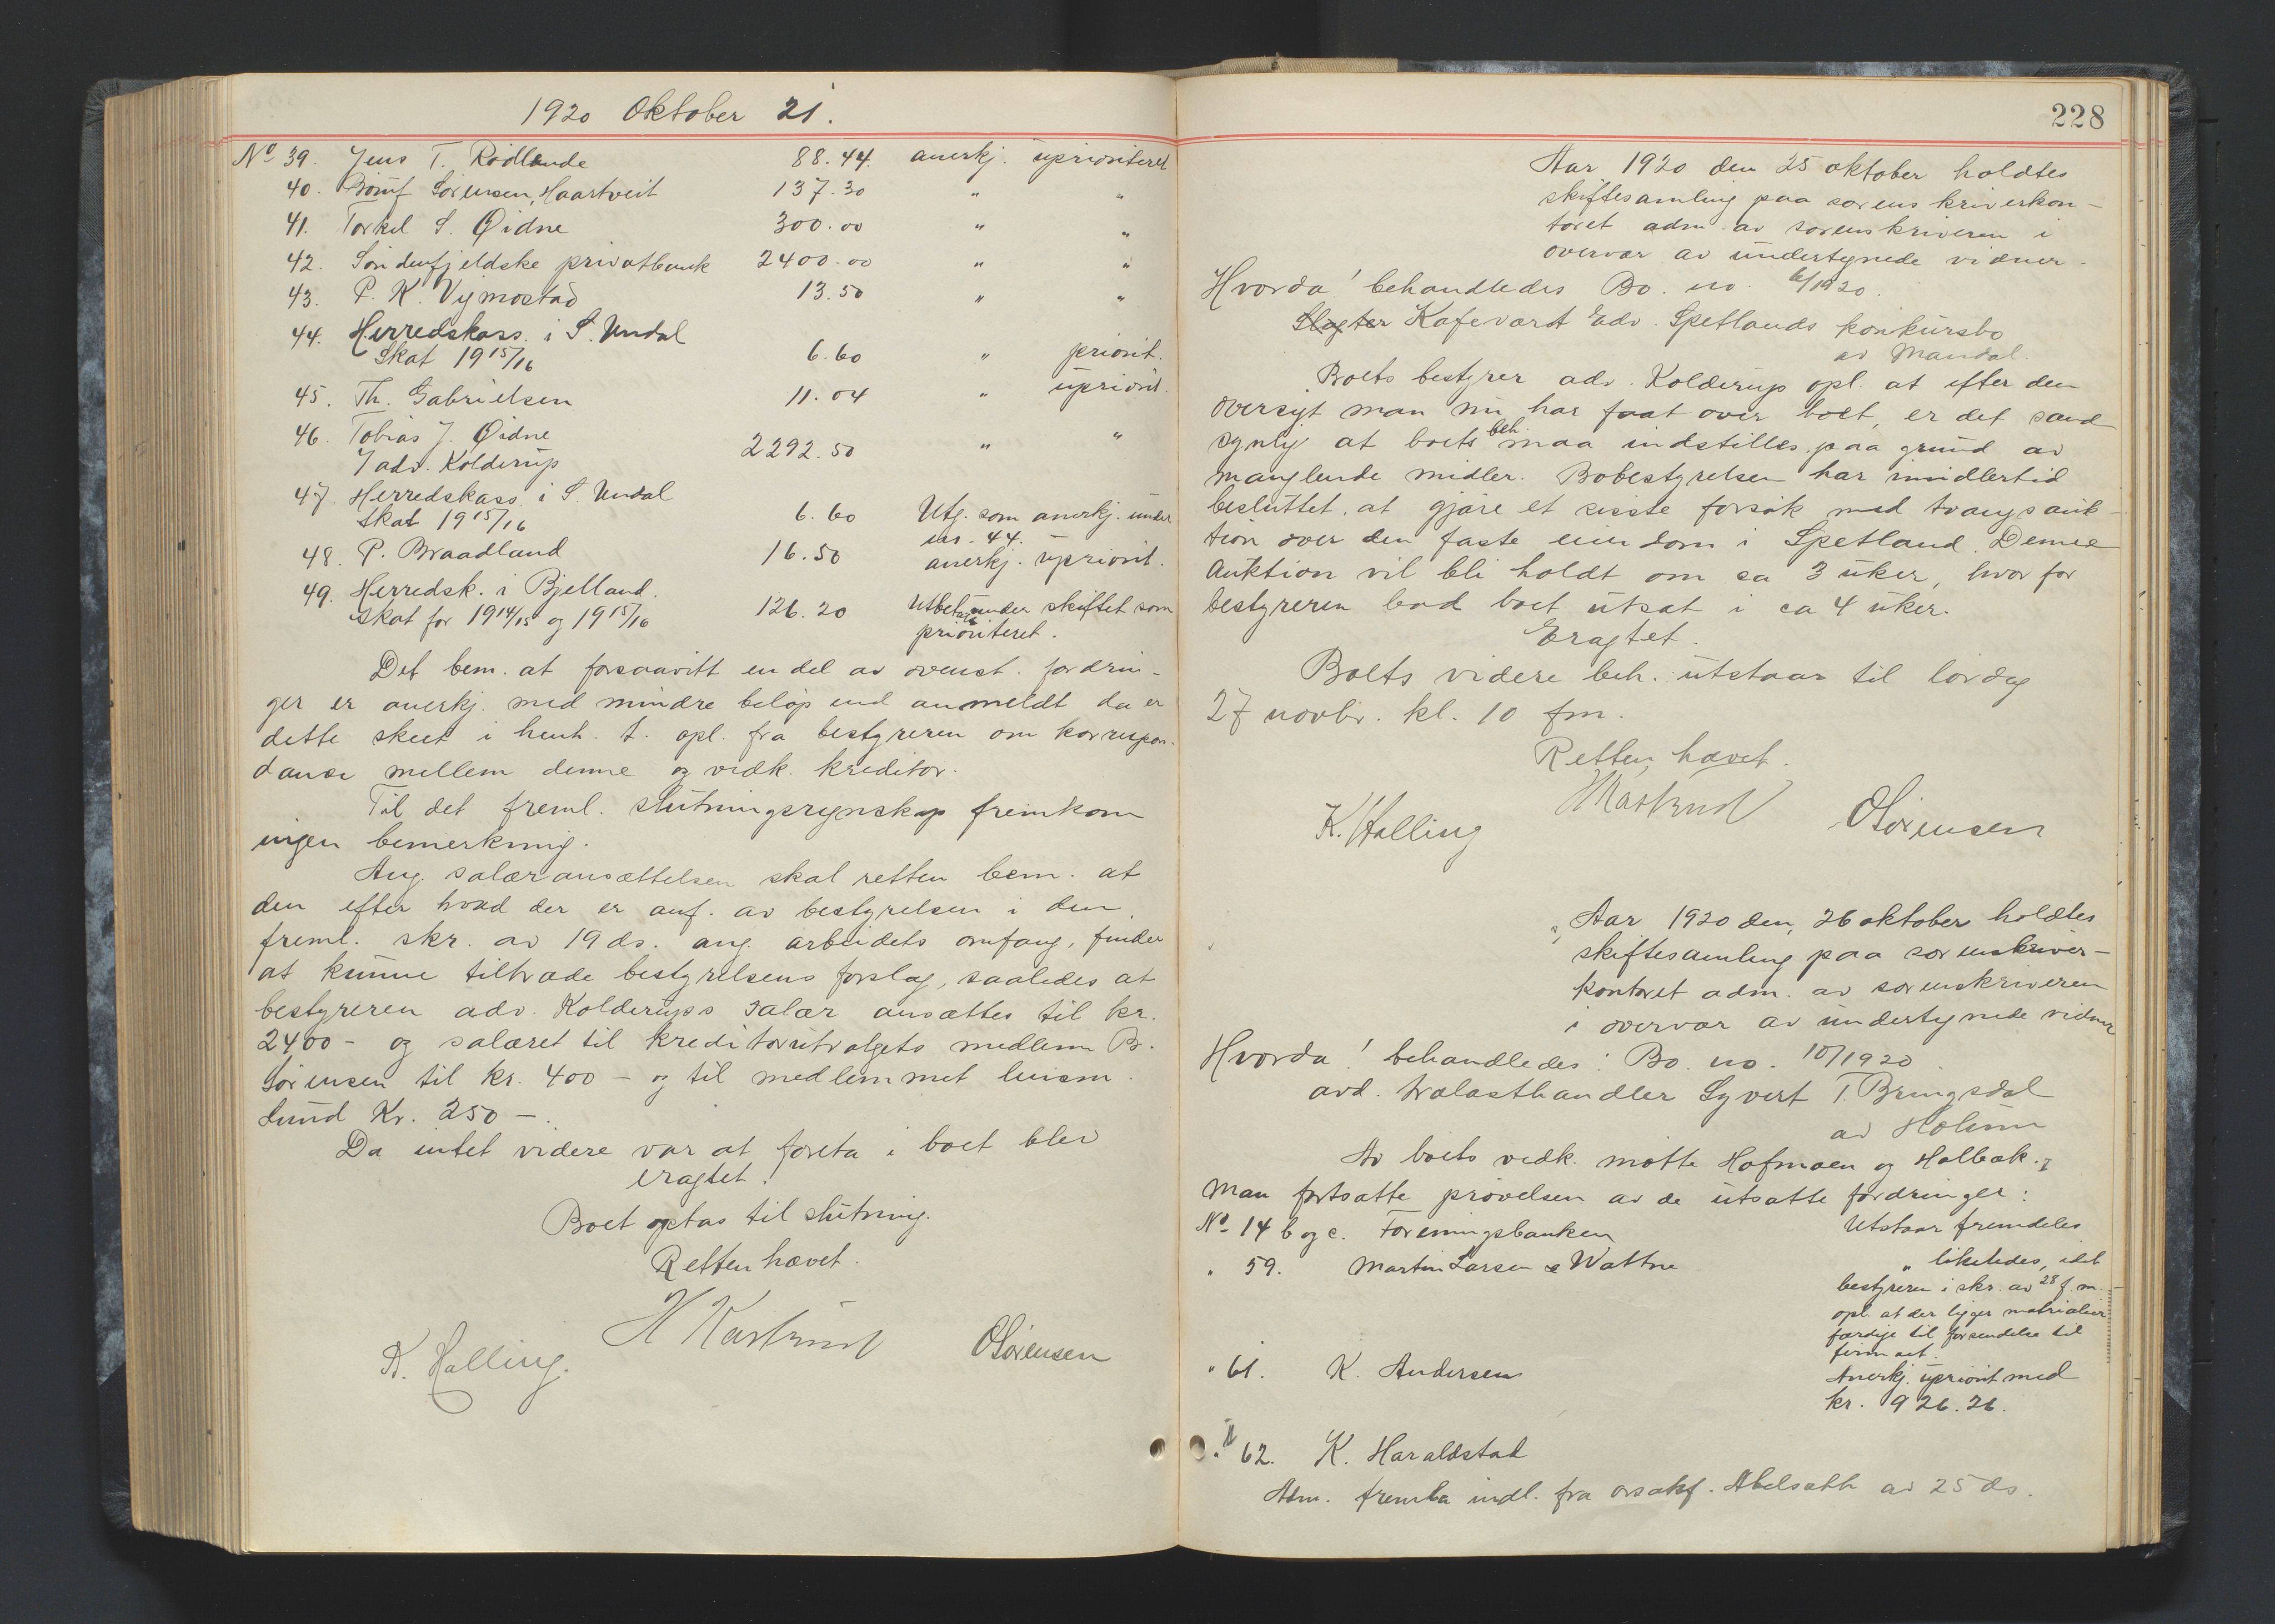 1920 Oktober 21.
No 39. Jens T. Rødlande 88.44. anerkj. uprioriteret
40. Sørensen, Haartveit 137.30 " "
41. Torkel S. Øidne 300.00 " "
42. Søndenfjeldske privatbank 2400.00 " "
43. P. K. Vijmostad 13.50 " "
44. Herredskass. i S. Undal
Skat 1915/16 6.60 " priorit.
45. Th. Gabrielsen 11.04 " upriorit.
46. Tobias J. Øidne
/ adv. Kolderup 2292.50 " "
47. Herredskass i S. Undal
skat 1915/16 6.60 Utg. som anerkj. under
nr. 44.
48. P. Braadland 16.50 anerkj. upriorit.
49. Herredsk. i Bjelland.
skat for 1914/15 og 1915/16 126.20 Utbetalt under skiftet som
prioriteret.
Det bem. at forsaavitt en del av ovenst. fordrin-
ger er anerkj. med mindre beløp end anmeldt da er
dette skeet i henh. t. opl. fra bestyreren om korrespon-
danse mellem denne og vedk. kreditor.
Til det freml. slutningsregnskap fremkom
ingen bemerkning.
Ang. salæransættelsen skal retten bem. at
den efter hvad der er anf. av bestyrelsen i den
freml. skr. av 19 ds. ang. arbeidets omfang, finder
at kunne tiltræde bestyrelsens forslag, saaledes at
bestyreren adv. Kolderups salær ansættes til kr.
2400 - og salæret til kreditorutvalgets medlem B.
Sørensen til kr. 400 - og til medlemmet lensm.
Lund Kr. 250 -.
Da intet videre var at foreta i boet blev
eragtet:
Boet optas til slutning.
Retten hævet.
K. Halling. H Kastrud OSørensen
228
Aar 1920 den 25 oktober holdtes
skiftesamling paa sorenskriverkon-
toret adm. av sorenskriveren i
overvær av undertegnede vidner.
Hvorda! behandledes Bo. no. 6/1920.
Slagter Kafevært Edv. Spetlands konkursbo
av Mandal.
Boets bestyrer adv. Kolderup opl. at efter den
oversigt man nu har faat over boet, er det sand
synlig at boets beh. maa indstilles paa grund av
manglende midler. Bobestyrelsen har imidlertid
besluttet at gjøre et sisste forsøk med tvangsauk-
tion over den faste eiendom i Spetland. Denne
Auktion vil bli holdt om ca 3 uker, hvorfor
bestyreren bad boet utsat i ca 4 uker.
Eragtet.
Boets videre beh. utstaar til lørdag
27 novbr. kl. 10 fm.
Retten hævet.
K. Halling HKastrud OSørensen
Aar 1920 den 26 oktober holdtes
skiftesamling paa sorenskriver-
kontoret adm. av sorenskriveren
i overvær av undertegnede vidner
Hvorda! behandledes: Bo. no. 10/1920
avd. trælasthandler Syvert T. Bringsdal
av Holum
Av boets vedk. møtte Hofmoen og Holbæk.
Man fortsatte prøvelsen av de utsatte fordringer:
No 14 b og c. Foreningsbanken Utstaar fremdeles
" 59. Martin Larsen & Wattne " likeledes, idet
bestyreren i skr. av 28 f. m.
opl. at der ligger materialier
færdige til forsendelse til
firmaet.
" 61. K. Andersen Anerkj. upriorit med
kr. 926.26.
" 62. K. Haraldstad
Adm. fremla indl. fra ovsakf. Abelseth av 25 ds.